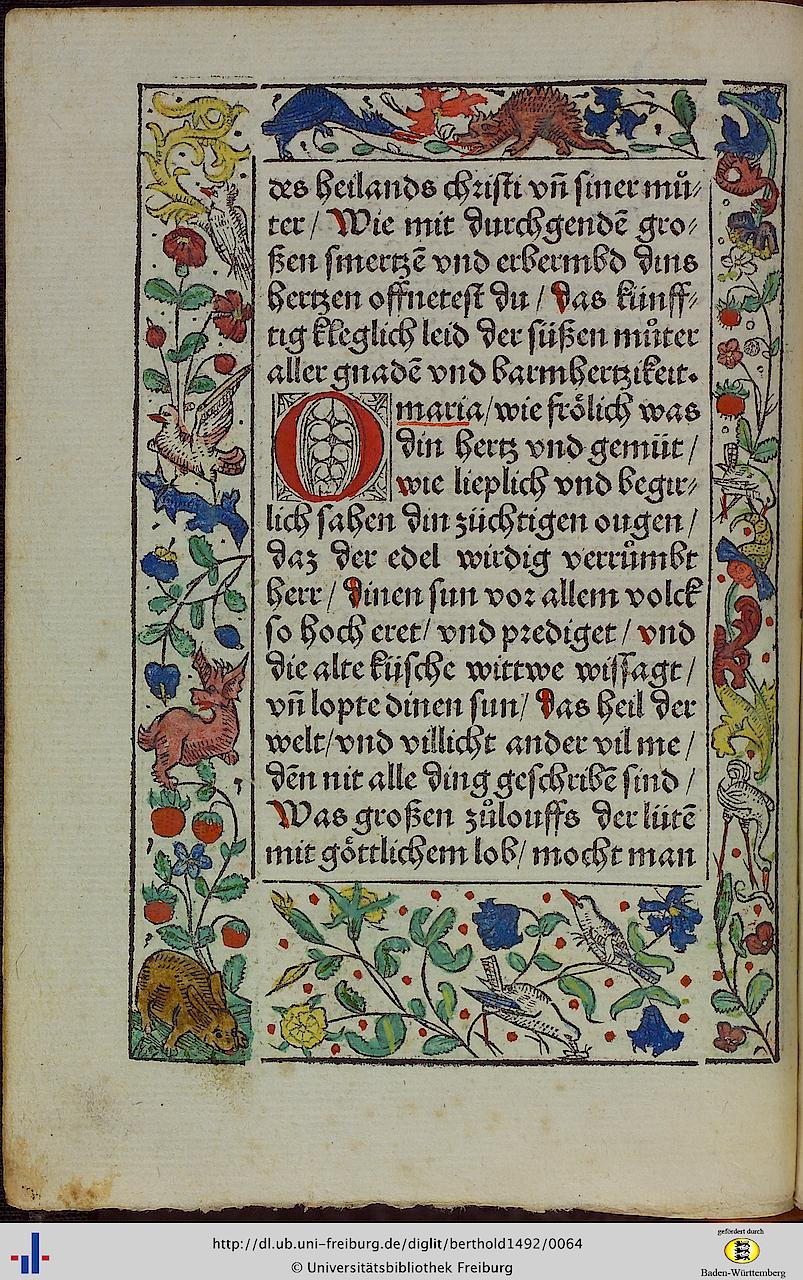 des heilands christi vn̄ siner mů⸗
ter / Wie mit durchgendē gro⸗
ßen smertzē vnd erbermbd dins
hertzen offnetest du / das künff⸗
tig kleglich leid der süßen můter
aller gnadē vnd barmhertzikeit.
O maria/ wie frölich was
din hertz vnd gemüt /
wie lieplich vnd begir⸗
lich sahen din züchtigen ougen /
daz der edel wirdig verrůmbt
herr / dinen sun vor allem volck
so hoch eret/ vnd prediget / vnd
die alte küsche wittwe wissagt /
vn̄ lopte dinen sun/ das heil der
welt/ vnd villicht ander vil me /
dēn nit alle ding geschribē sind /
Was großen zůlouffs der lütē
mit göttlichem lob/ mocht man
http://dl.ub.uni-freiburg.de/diglit/berthold1492/0064
© Universitätsbibliothek Freiburg
gefördert durch
Baden-Württemberg